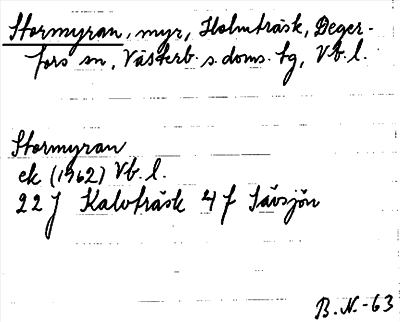 Stormyran, myr, Holmträsk, Deger-
fors sn, Västerb. s. doms. tg, Vb. l.
Stormyran
ek (1962) Vb. l.
22 J Kalvträsk 4 f Sävsjön
B. N. -63